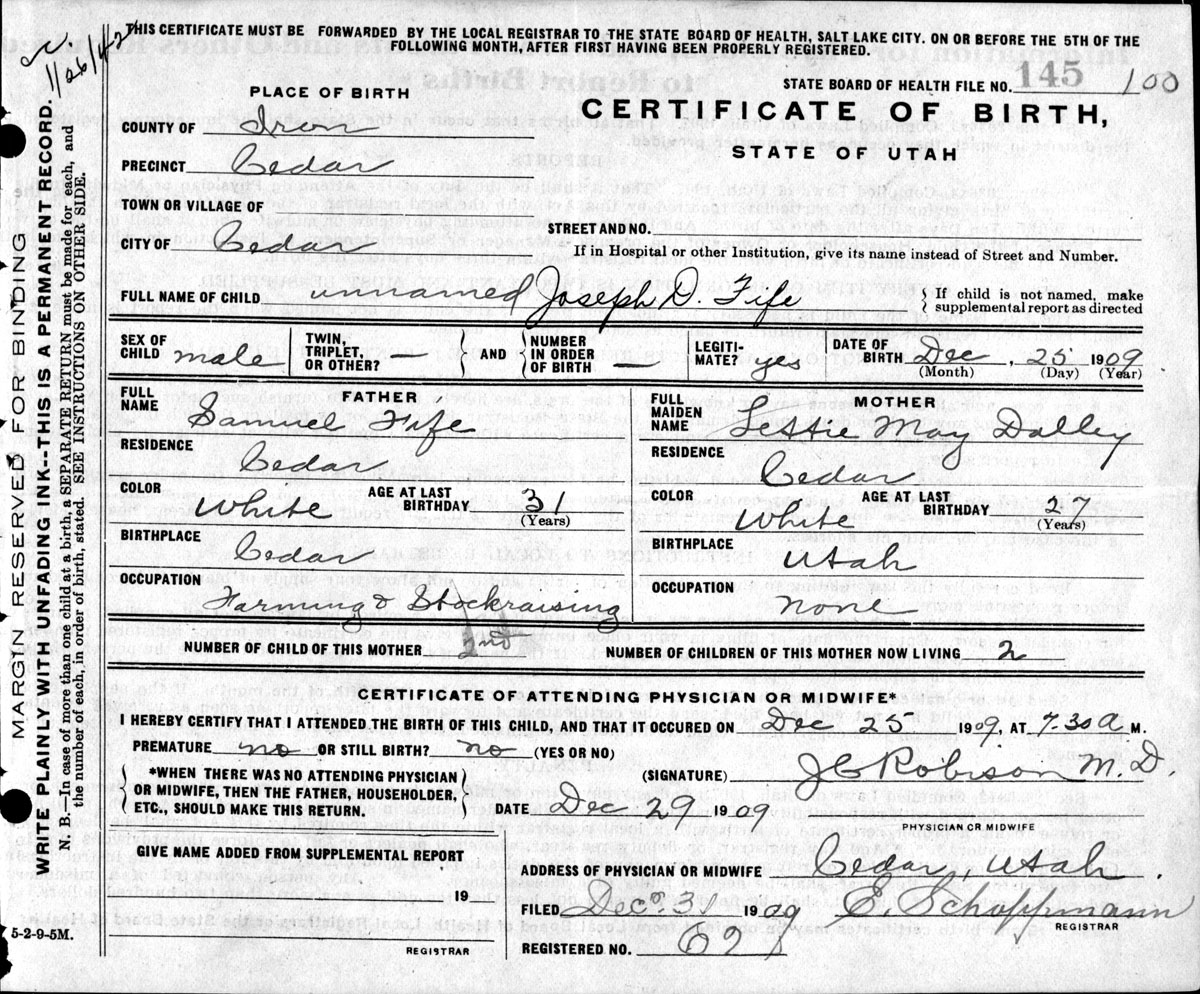 THIS CERTIFICATE MUST BE FORWARDED BY THE LOCAL REGISTRAR TO THE STATE BOARD OF HEALTH, SALT LAKE CITY. ON OR BEFORE THE 5TH OF THE
FOLLOWING MONTH, AFTER FIRST HAVING BEEN PROPERLY REGISTERED.
STATE BOARD OF HEALTH FILE NO. 145 100
PLACE OF BIRTH
CERTIFICATE OF BIRTH,
STATE OF UTAH
COUNTY OF Iron
PRECINCT Cedar
TOWN OR VILLAGE OF
STREET AND NO.
CITY OF Cedar
If in Hospital or other Institution, give its name instead of Street and Number.
FULL NAME OF CHILD unnamed Joseph D. Fife
If child is not named, make
supplemental report as directed
SEX OF CHILD male
TWIN, TRIPLET, OR OTHER? —
AND
NUMBER IN ORDER OF BIRTH —
LEGITI-MATE? yes
DATE OF BIRTH Dec, 25 1909
(Month) (Day) (Year)
FATHER
FULL NAME Samuel Fife
RESIDENCE Cedar
COLOR White AGE AT LAST BIRTHDAY 31
(Years)
BIRTHPLACE Cedar
OCCUPATION Farming & Stockraising
MOTHER
FULL MAIDEN NAME Lettie May Dalley
RESIDENCE Cedar
COLOR White AGE AT LAST BIRTHDAY 27
(Years)
BIRTHPLACE Utah
OCCUPATION none
NUMBER OF CHILD OF THIS MOTHER 2nd NUMBER OF CHILDREN OF THIS MOTHER NOW LIVING 2
CERTIFICATE OF ATTENDING PHYSICIAN OR MIDWIFE*
I HEREBY CERTIFY THAT I ATTENDED THE BIRTH OF THIS CHILD, AND THAT IT OCCURED ON Dec 25 1909, AT 7.30 a M.
PREMATURE no OR STILL BIRTH? no (YES OR NO)
*WHEN THERE WAS NO ATTENDING PHYSICIAN
OR MIDWIFE, THEN THE FATHER, HOUSEHOLDER,
ETC., SHOULD MAKE THIS RETURN.
(SIGNATURE) J C Robison M.D.
DATE Dec 29 1909
PHYSICIAN OR MIDWIFE
GIVE NAME ADDED FROM SUPPLEMENTAL REPORT
19
REGISTRAR
ADDRESS OF PHYSICIAN OR MIDWIFE Cedar, Utah.
FILED Dec. 31 1909 E. Schoppmann
REGISTRAR
REGISTERED NO. 62
5-2-9-5M.
MARGIN RESERVED FOR BINDING
WRITE PLAINLY WITH UNFADING INK--THIS IS A PERMANENT RECORD.
N. B.—In case of more than one child at a birth, a SEPARATE RETURN must be made for each, and
the number of each, in order of birth, stated. SEE INSTRUCTIONS ON OTHER SIDE.